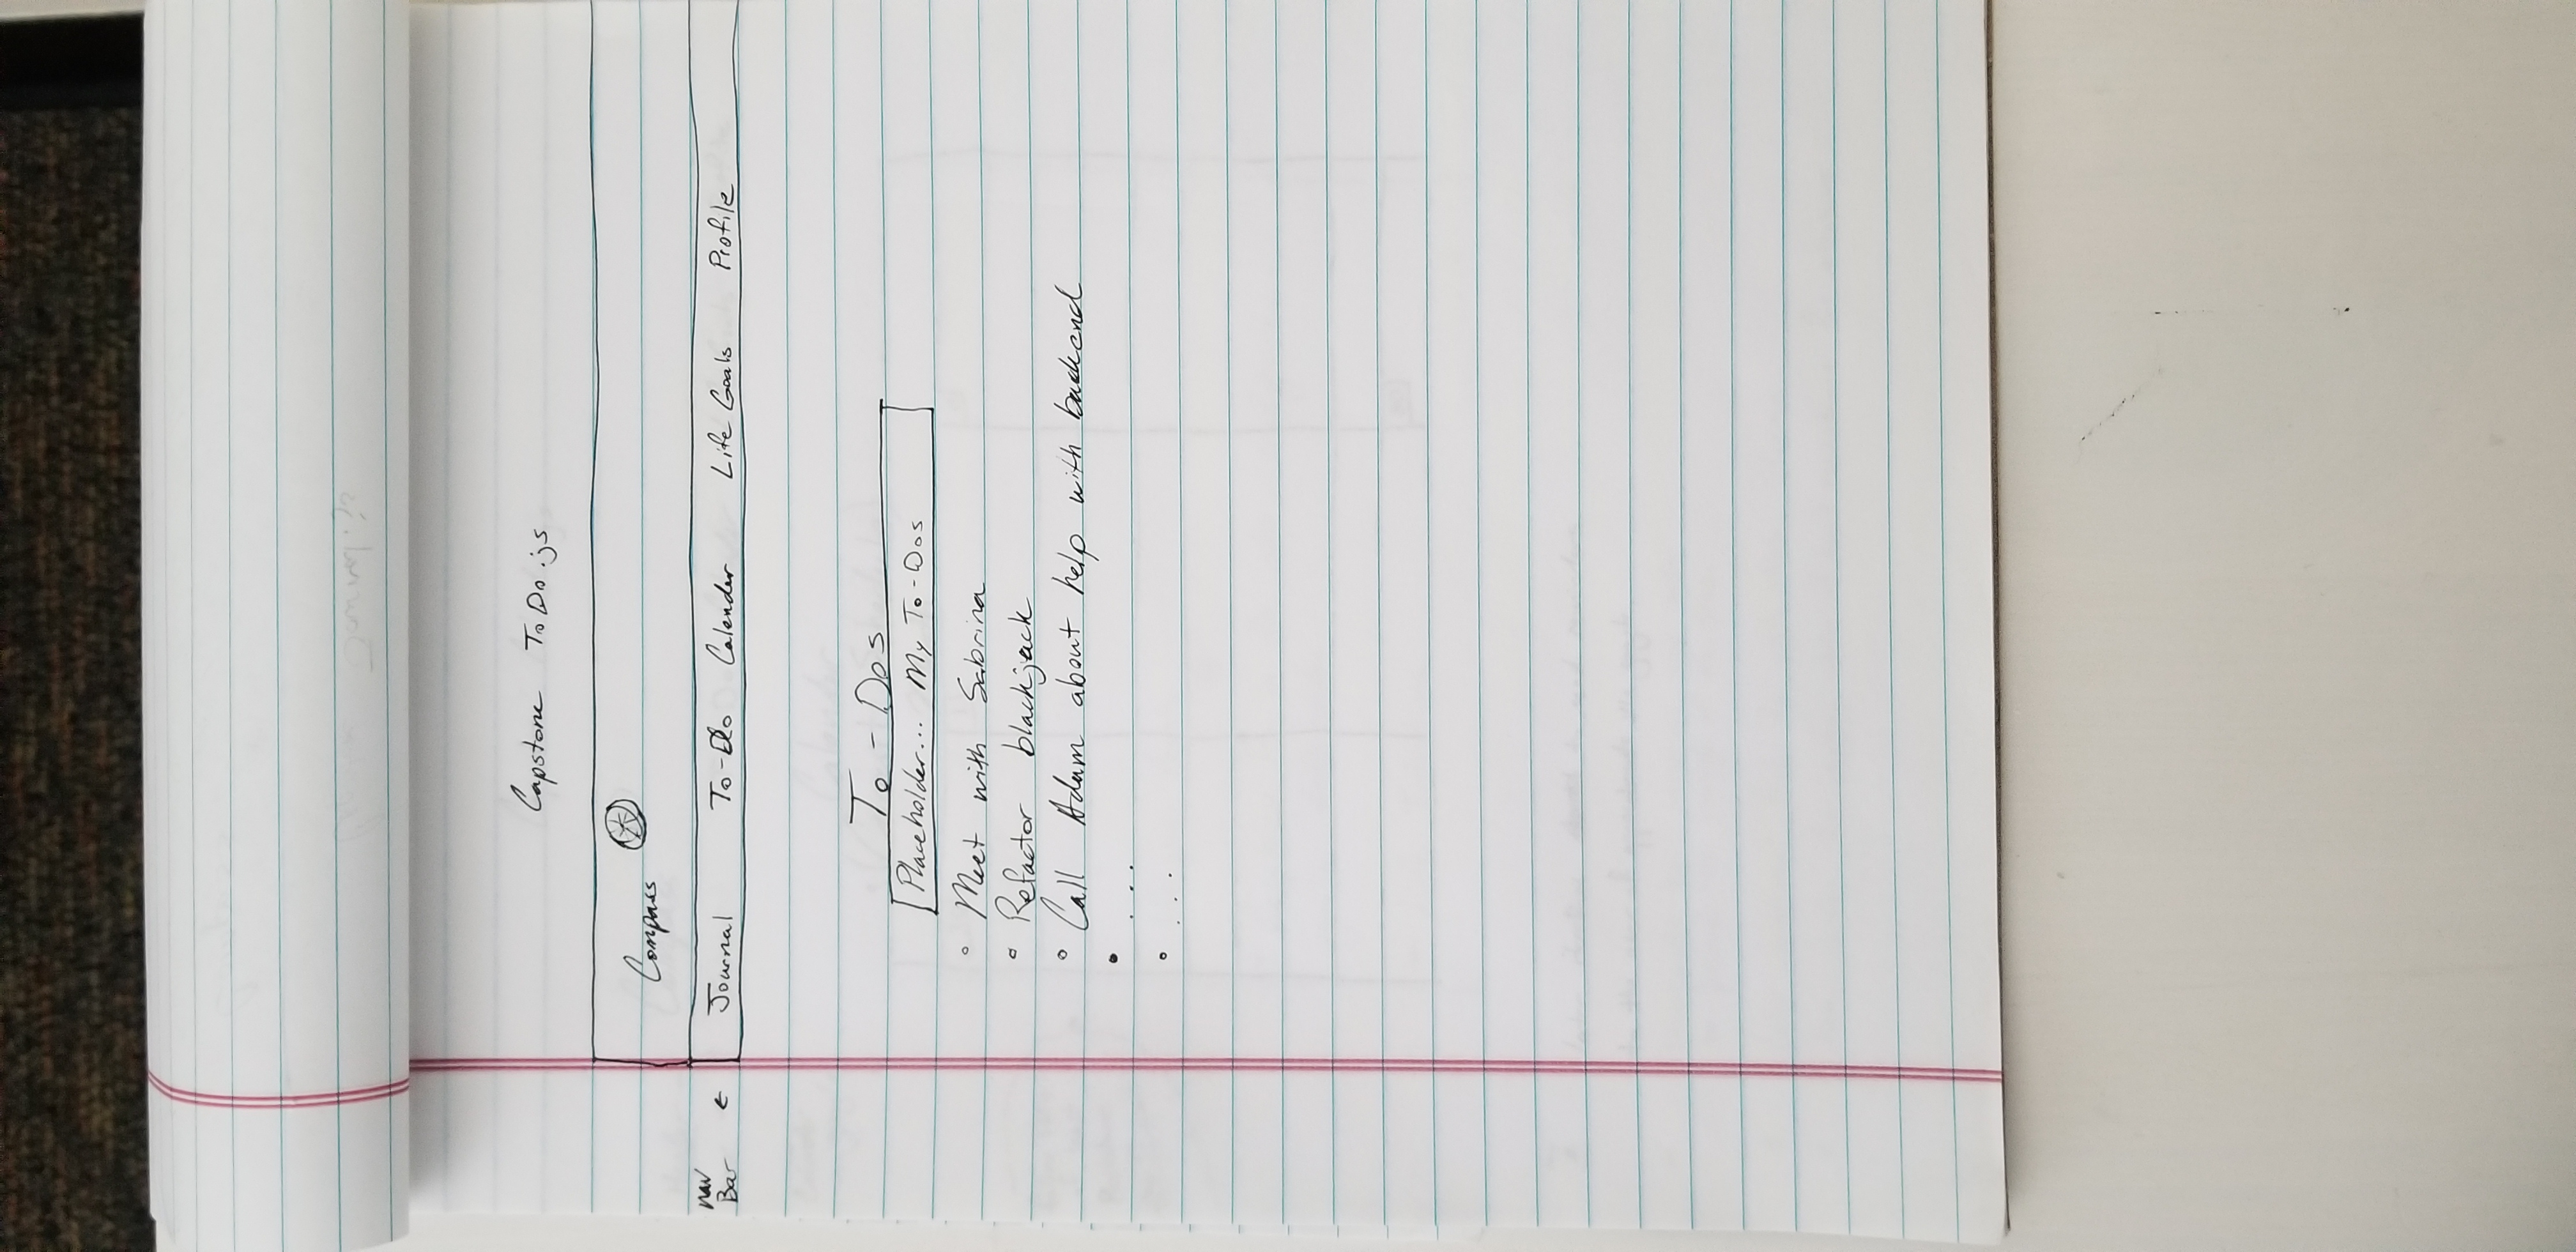 Capstone ToDo.js
Compass
nav
Bar ← Journal To-Do Calender Life Goals Profile
To-Dos
Placeholder... My To-Dos
° Meet with Sabrina
° Refactor blackjack
° Call Adam about help with backend
• ...
° ...